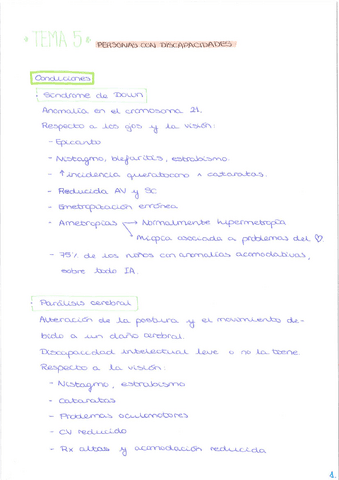 * TEMA 5 * PERSONAS CON DISCAPACIDADES
Condiciones
Síndrome de Down
Anomalía en el cromosoma 21.
Respecto a los ojos y la visión:
- Epicanto
- Nistagmo, blefaritis, estrabismo.
- ↑ incidencia queratocono y cataratas.
- Reducida AV y SC
- Emetropización errónea
- Ametropías → Normalmente hipermetropía
→ Miopía asociada a problemas del ♡.
- 75% de los niños con anomalías acomodativas,
sobre todo IA.
Parálisis cerebral
Alteración de la postura y el movimiento de-
bido a un daño cerebral.
Discapacidad intelectual leve o no la tiene.
Respecto a la visión:
- Nistagmo, estrabismo
- Cataratas
- Problemas oculomotores
- CV reducido
- Rx altas y acomodación reducida
1.